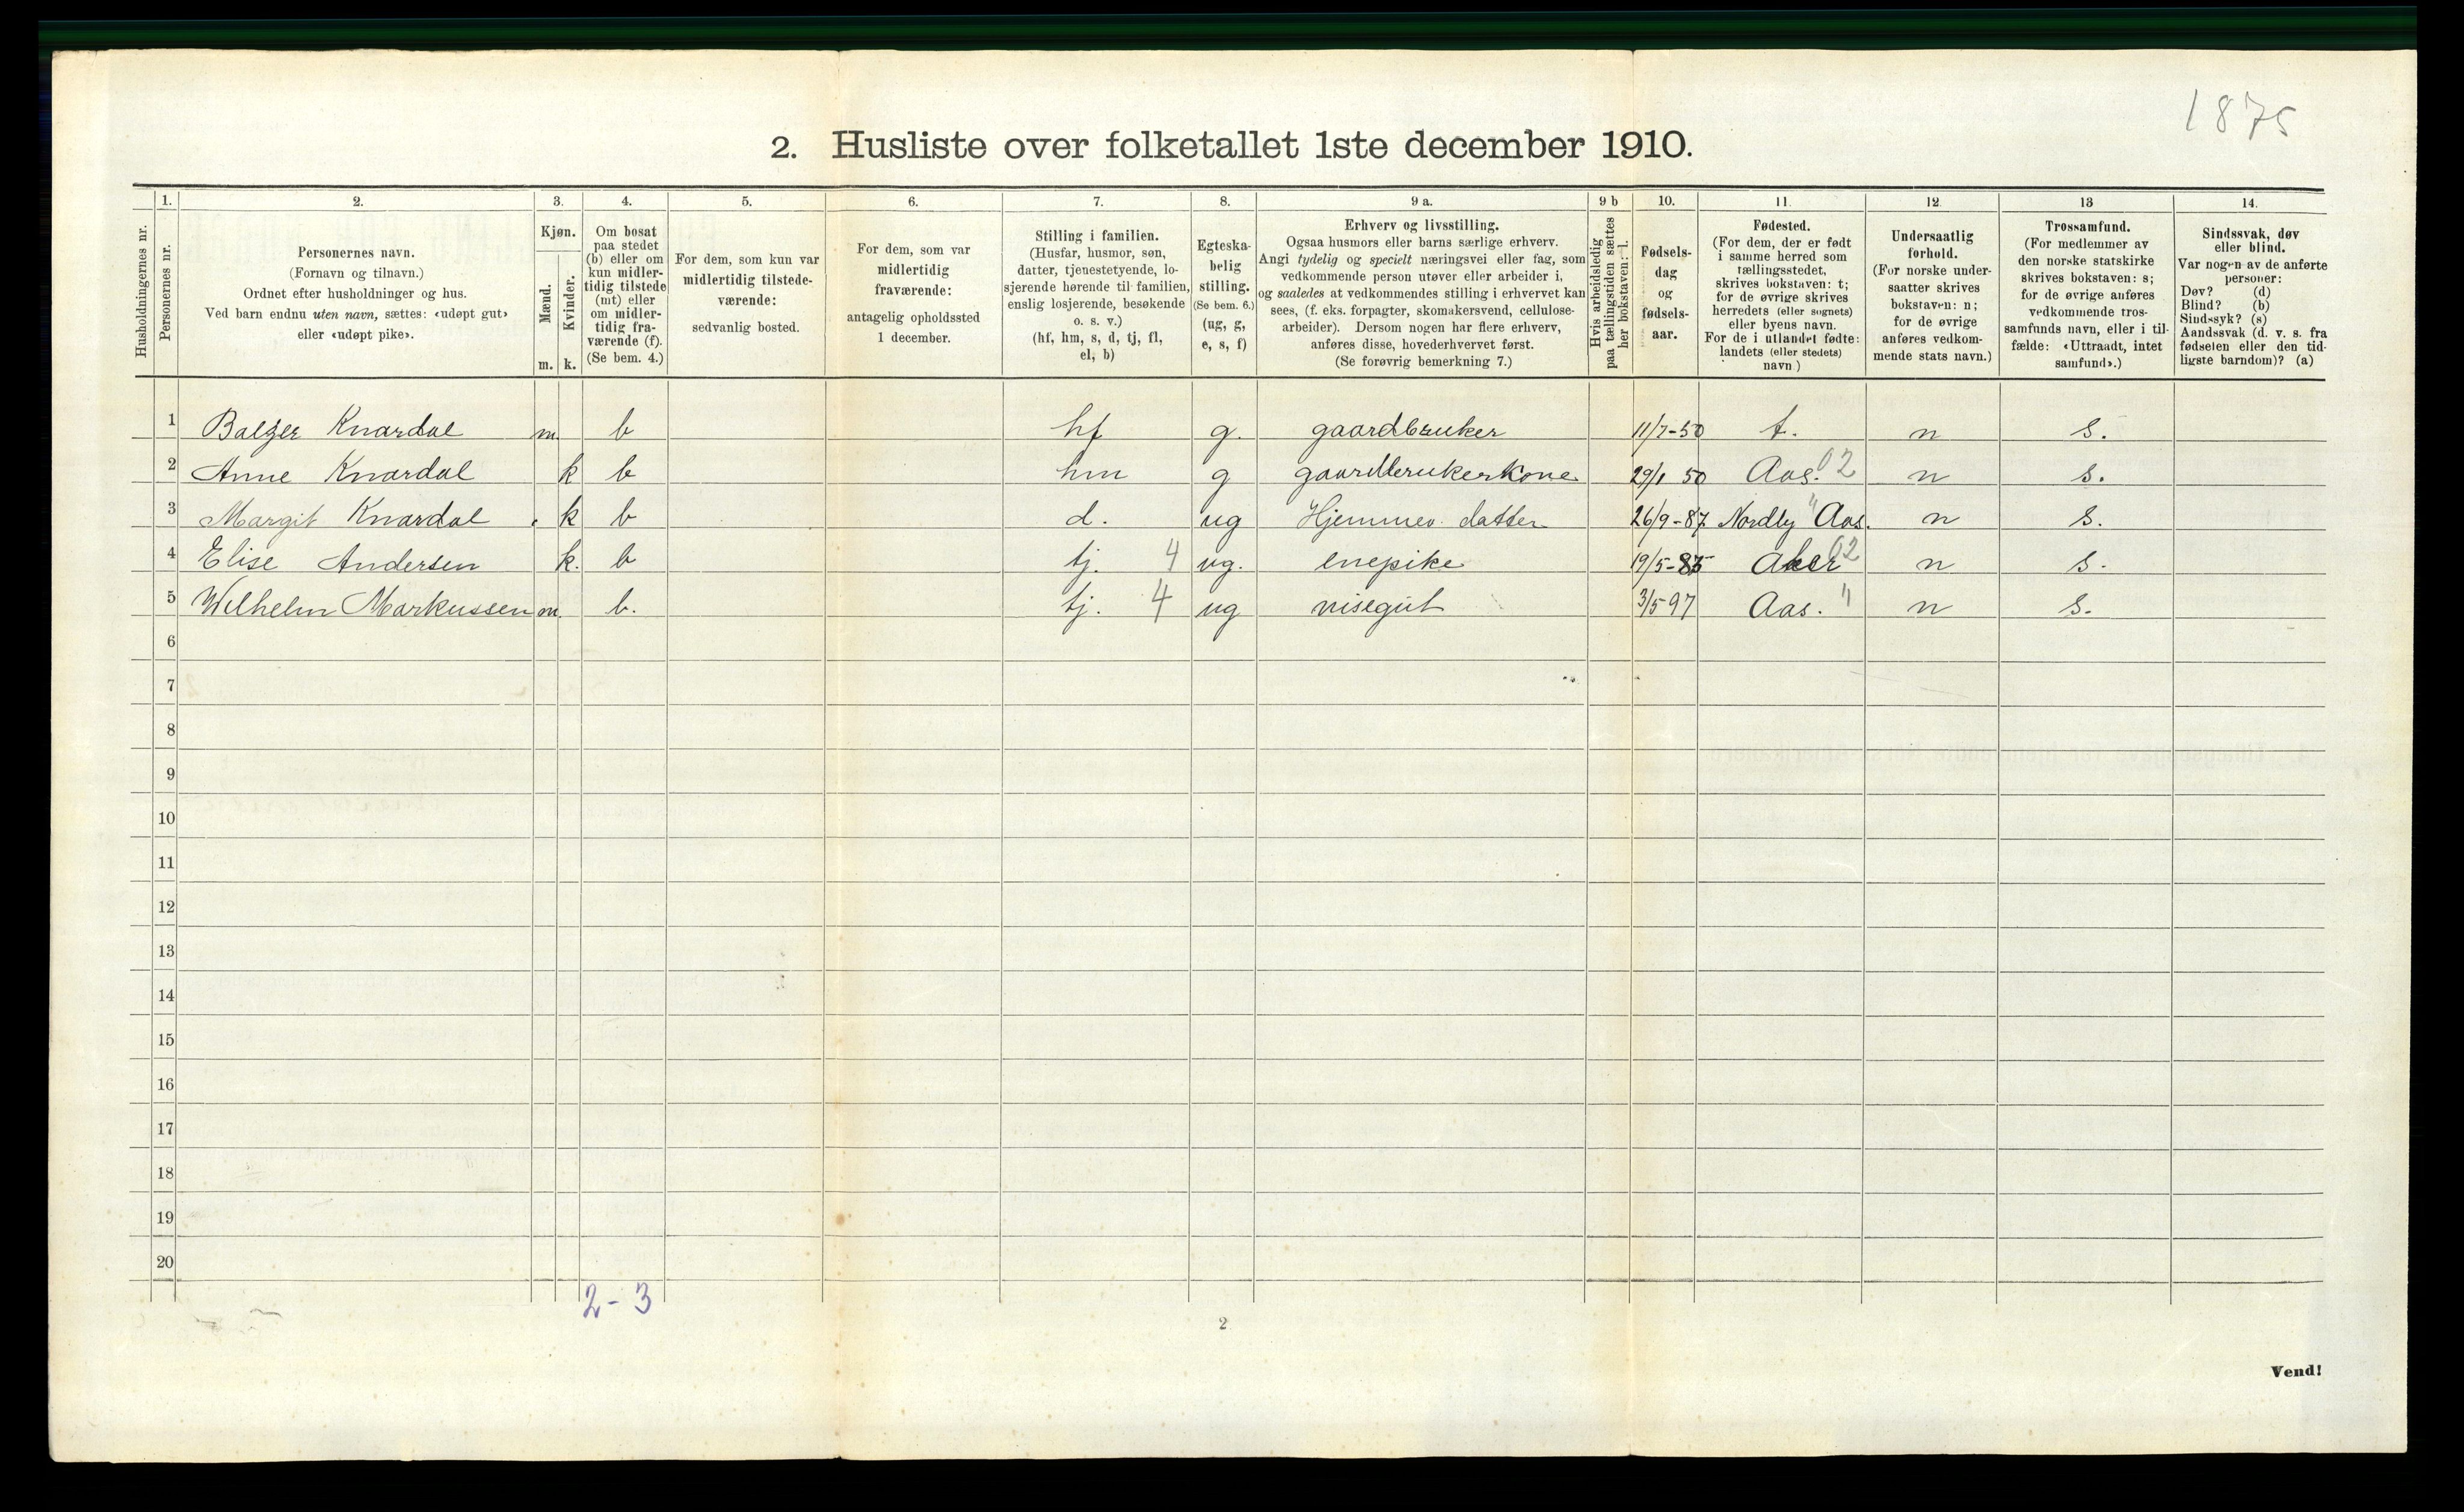 1875
2. Husliste over folketallet 1ste december 1910.
Husholdningernes nr.
1.
Personernes nr.
2.
Personernes navn.
(Fornavn og tilnavn.)
Ordnet efter husholdninger og hus.
Ved barn endnu uten navn, sættes: «udøpt gut»
eller «udøpt pike».
3.
Kjøn.
Mænd.
m.
Kvinder.
k.
4.
Om bosat
paa stedet
(b) eller om
kun midler-
tidig tilstede
(mt) eller
om midler-
tidig fra-
værende (f).
(Se bem. 4.)
5.
For dem, som kun var
midlertidig tilstede-
værende:
sedvanlig bosted.
6.
For dem, som var
midlertidig
fraværende:
antagelig opholdssted
1 december.
7.
Stilling i familien.
(Husfar, husmor, søn,
datter, tjenestetyende, lo-
sjerende hørende til familien,
enslig losjerende, besøkende
o. s. v.)
(hf, hm, s, d, tj, fl,
el, b)
8.
Egteska-
belig
stilling.
(Se bem. 6.)
(ug, g,
e, s, f)
9 a.
Erhverv og livsstilling.
Ogsaa husmors eller barns særlige erhverv.
Angi tydelig og specielt næringsvei eller fag, som
vedkommende person utøver eller arbeider i,
og saaledes at vedkommendes stilling i erhvervet kan
sees, (f. eks. forpagter, skomakersvend, cellulose-
arbeider). Dersom nogen har flere erhverv,
anføres disse, hovederhvervet først.
(Se forøvrig bemerkning 7.)
9 b
Hvis arbeidsledig
paa tællingstiden sættes
her bokstaven: l.
10.
Fødsels-
dag
og
fødsels-
aar.
11.
Fødested.
(For dem, der er født
i samme herred som
tællingsstedet,
skrives bokstaven: t;
for de øvrige skrives
herredets (eller sognets)
eller byens navn.
For de i utlandet fødte:
landets (eller stedets)
navn.)
12.
Undersaatlig
forhold.
(For norske under-
saatter skrives
bokstaven: n;
for de øvrige
anføres vedkom-
mende stats navn.)
13
Trossamfund.
(For medlemmer av
den norske statskirke
skrives bokstaven: s;
for de øvrige anføres
vedkommende tros-
samfunds navn, eller i til-
fælde: «Uttraadt, intet
samfund».)
14.
Sindssvak, døv
eller blind.
Var nogen av de anførte
personer:
Døv? (d)
Blind? (b)
Sindssyk? (s)
Aandssvak (d. v. s. fra
fødselen eller den tid-
ligste barndom)? (a)
1 Balzer Knardal m. b hf g. gaardbruker 11/7-50 t. n s.
2 Anne Knardal k b hm g gaardbrukerkone 29/1 50 Aas. 02 n s.
3 Margit Knardal k b d. ug Hjemmev. datter 26/9-87 Nordby " Aas. n s.
4 Elise Andersen k. b tj. 4 ug. enepike 19/5-85 Aker 02 n s.
5 Wilhelm Markussen m. b. tj. 4 ug visegut 3/5 97 Aas. " n s.
6
7
8
9
10
11
12
13
14
15
16
17
18
19
20
2-3
2
Vend!